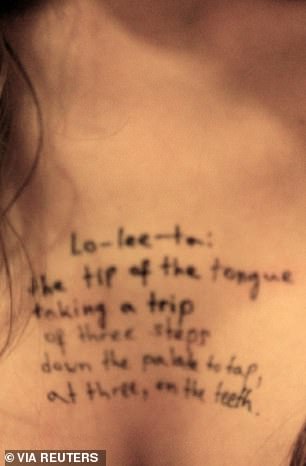 Lo-lee-ta:
the tip of the tongue
taking a trip
of three steps
down the palate to tap,
at three, on the teeth.
© VIA REUTERS